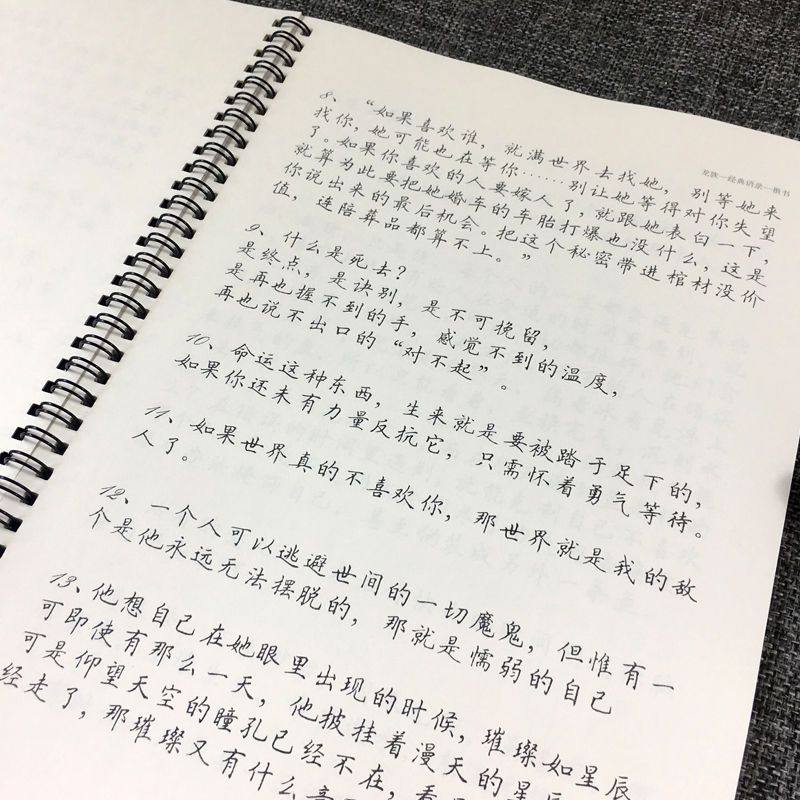 龙族—经典语录—楷书
8、“如果喜欢谁，就满世界去找她，别等她来
找你，她可能也在等你……别让她等得对你失望
了。如果你喜欢的人要嫁人了，就跟她表白一下，
就算为此要把她婚车的车胎打爆也没什么，这是
你说出来的最后机会。把这个秘密带进棺材没价
值，连陪葬品都算不上。”
9、什么是死去？
是终点，是诀别，是不可挽留，
是再也握不到的手，感觉不到的温度，
再也说不出口的“对不起”。
10、命运这种东西，生来就是要被踏于足下的，
如果你还未有力量反抗它，只需怀着勇气等待。
11、如果世界真的不喜欢你，那世界就是我的敌
人了。
12、一个人可以逃避世间的一切魔鬼，但惟有一
个是他永远无法摆脱的，那就是懦弱的自己
13、他想自己在她眼里出现的时候，璀璨如星辰
可即使有那么一天，他披挂着漫天的星辰
可是仰望天空的瞳孔已经不在，看
经走了，那璀璨又有什么意